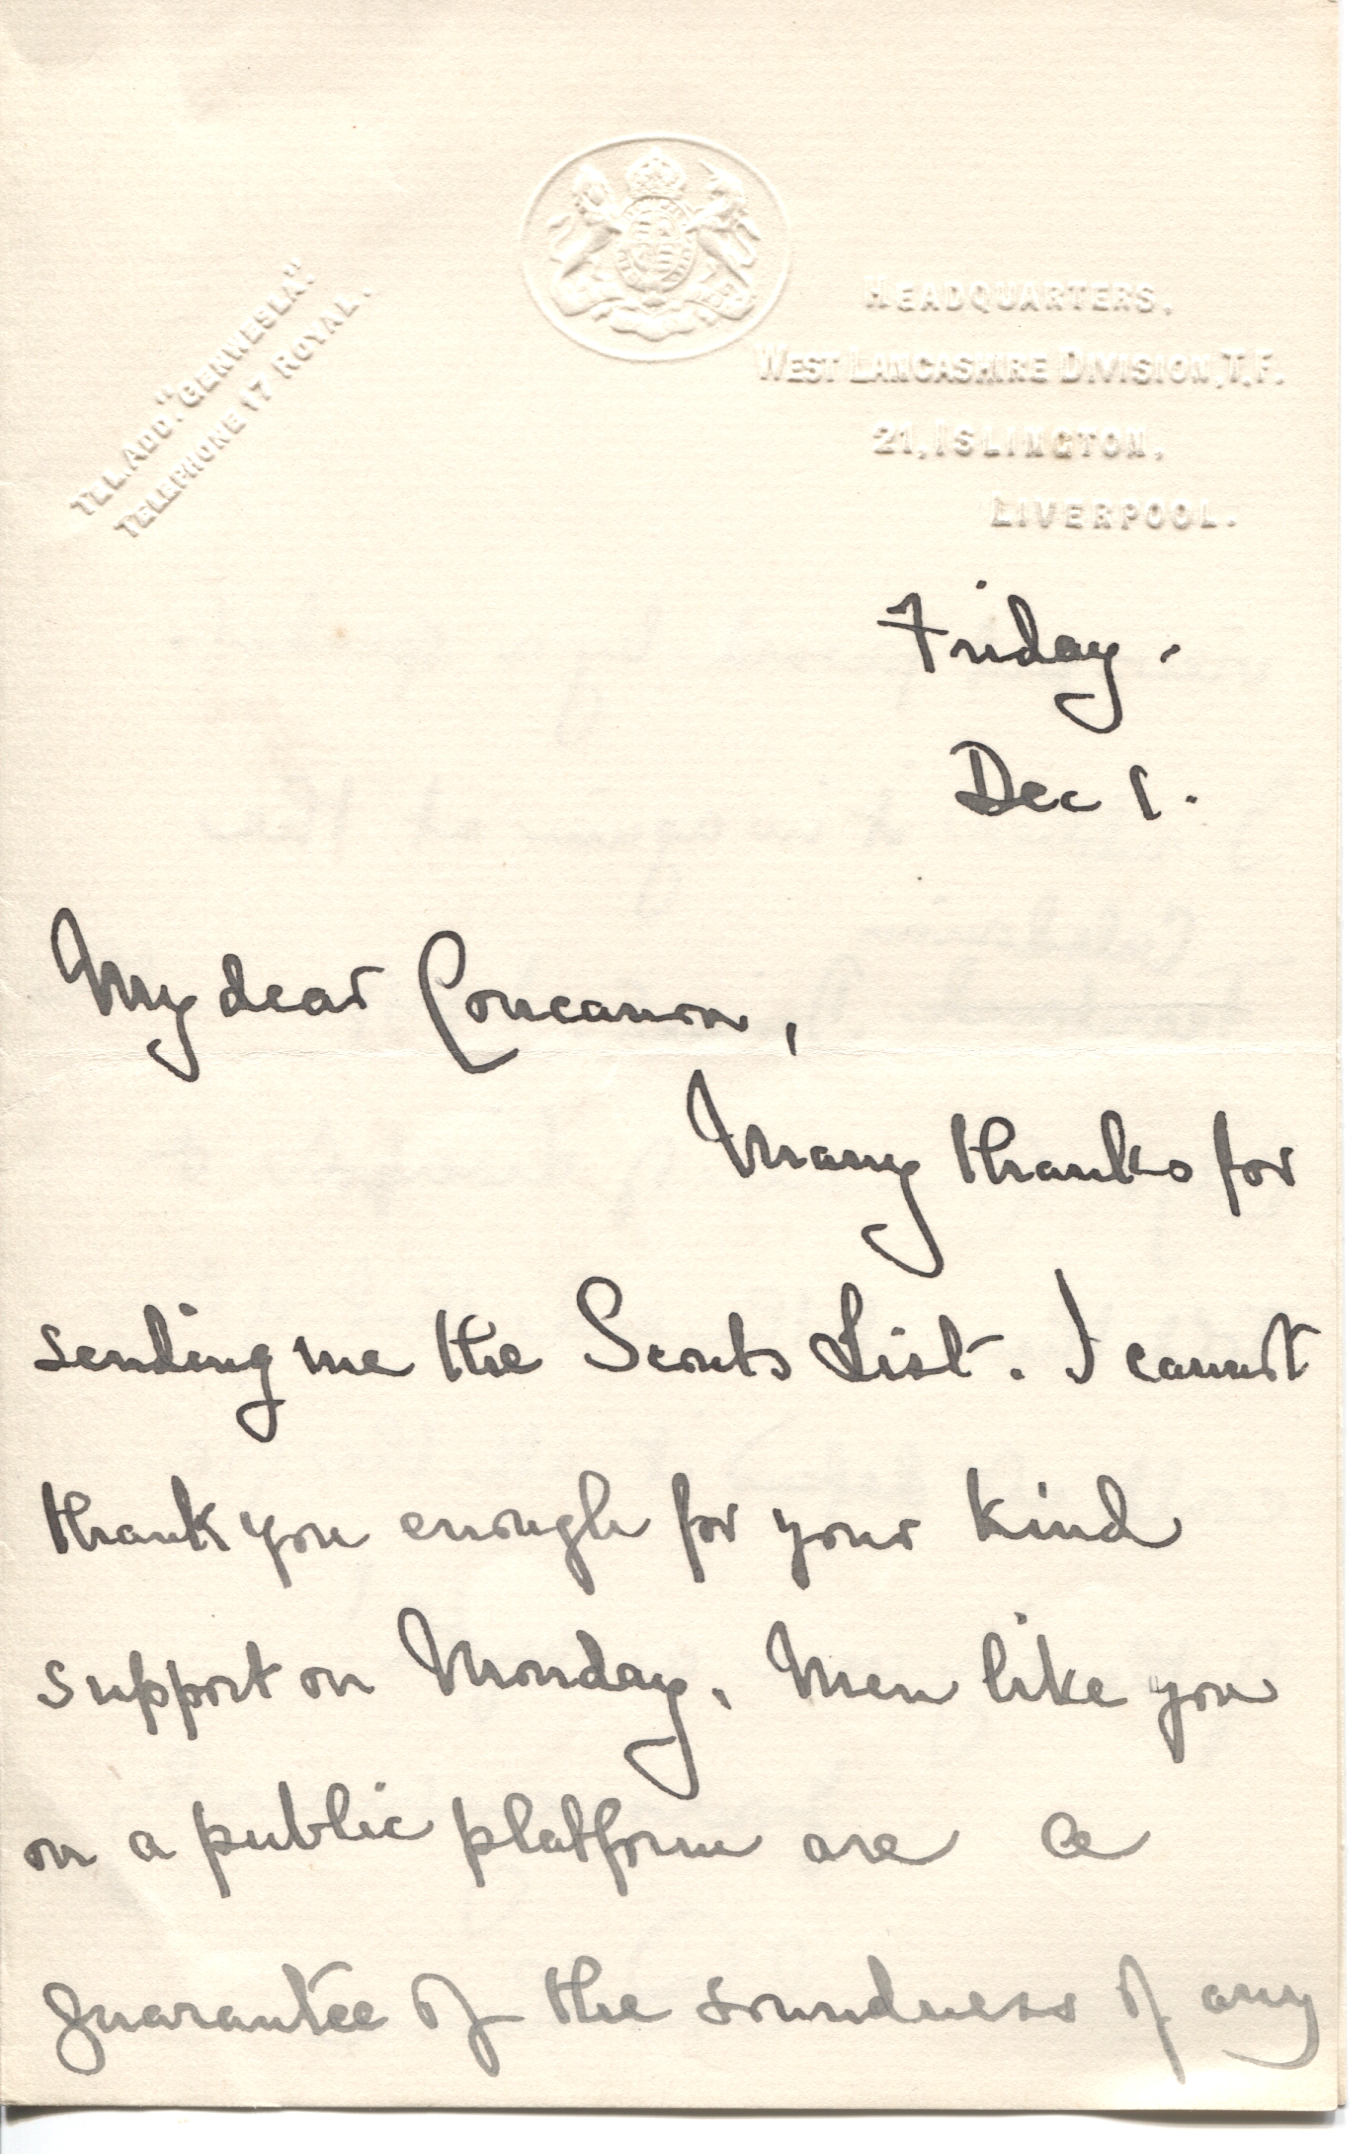 TEL. ADD. "GENWESLA".
TELEPHONE 17 ROYAL.
HEADQUARTERS.
WEST LANCASHIRE DIVISION, T.F.
21, ISLINGTON,
LIVERPOOL.
Friday.
Dec 1.
My dear Concanon,
Many thanks for
sending me the Scouts List. I cannot
thank you enough for your kind
support on Monday. Men like you
on a public platform are a
guarantee of the soundness of any